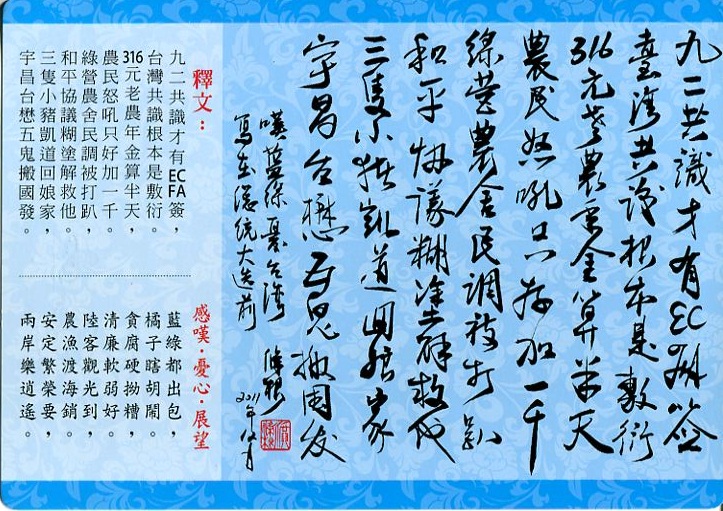 九二共識才有EC FA簽
臺灣共識根本是敷衍
316元老農年金算半天
農民怒吼只好加一千
綠營農舍民調被打趴
和平協議糊塗解救他
三隻小豬凱道回娘家
宇昌台懋五鬼搬國發
嘆藍綠憂台灣
寫在總統大選前
2011年12月
釋文：
九二共識才有ECFA簽，
台灣共識根本是敷衍。
316元老農年金算半天，
農民怒吼只好加一千。
綠營農舍民調被打趴，
和平協議糊塗解救他。
三隻小豬凱道回娘家，
宇昌台懋五鬼搬國發。
感嘆·憂心·展望
藍綠都出包，
橘子瞎胡鬧。
貪腐硬拗糟，
清廉軟弱好。
陸客觀光到，
農漁渡海銷。
安定繁榮要，
兩岸樂逍遙。